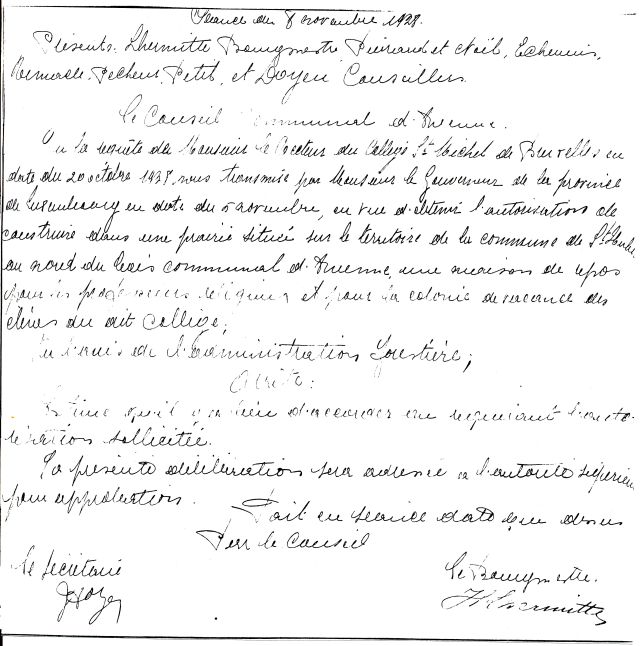 Séance du 8 novembre 1938.
Présents: Lhermitte Bourgmestre Pierrard et Noël, Echevins,
Remacle Pecheur, Petit, et Doyen Conseillers
Le Conseil Communal d'Awenne.
Vu la requête de Monsieur le Recteur du Collège St Michel de Bruxelles en
date du 20 octobre 1938, nous transmise par Monsieur le Gouverneur de la province
de Luxembourg en date du novembre, en vue d'obtenir l'autorisation de
construire dans une prairie située sur le territoire de la commune de St Hubert
au nord du bois communal d'Awenne, une maison de repos
pour les professeurs religieux et pour la colonie de vacance des
élèves du dit Collège;
Vu l'avis de l'administration forestière;
Arrête:
Estime qu'il y a lieu d'accorder au requérant l'auto-
risation sollicitée.
La présente délibération sera adressée à l'autorité supérieure
pour approbation.
Fait en séance date que dessus
Par le Conseil
Le Secrétaire
Le Bourgmestre.
JDoyen
Lhermitte